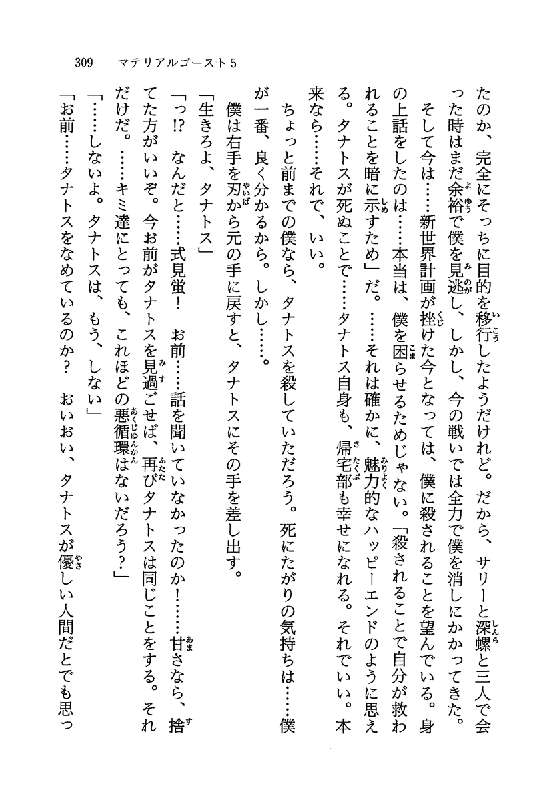 309　マテリアルゴースト5
たのか、完全にそっちに目的を移行したようだけれど。だから、サリーと深螺と三人で会
った時はまだ余裕で僕を見逃し、しかし、今の戦いでは全力で僕を消しにかかってきた。
そして今は……新世界計画が挫けた今となっては、僕に殺されることを望んでいる。身
の上話をしたのは……本当は、僕を困らせるためじゃない。「殺されることで自分が救わ
れることを暗に示すため」だ。……それは確かに、魅力的なハッピーエンドのように思え
る。タナトスが死ぬことで……タナトス自身も、帰宅部も幸せになれる。それでいい。本
来なら……それで、いい。
ちょっと前までの僕なら、タナトスを殺していただろう。死にたがりの気持ちは……僕
が一番、良く分かるから。しかし……。
僕は右手を刃から元の手に戻すと、タナトスにその手を差し出す。
「生きろよ、タナトス」
「っ!?　なんだと……式見蛍！　お前……話を聞いていなかったのか！……甘さなら、捨
てた方がいいぞ。今お前がタナトスを見過ごせば、再びタナトスは同じことをする。それ
だけだ。……キミ達にとっても、これほどの悪循環はないだろう？」
「……しないよ。タナトスは、もう、しない」
「お前……タナトスをなめているのか？　おいおい、タナトスが優しい人間だとでも思っ